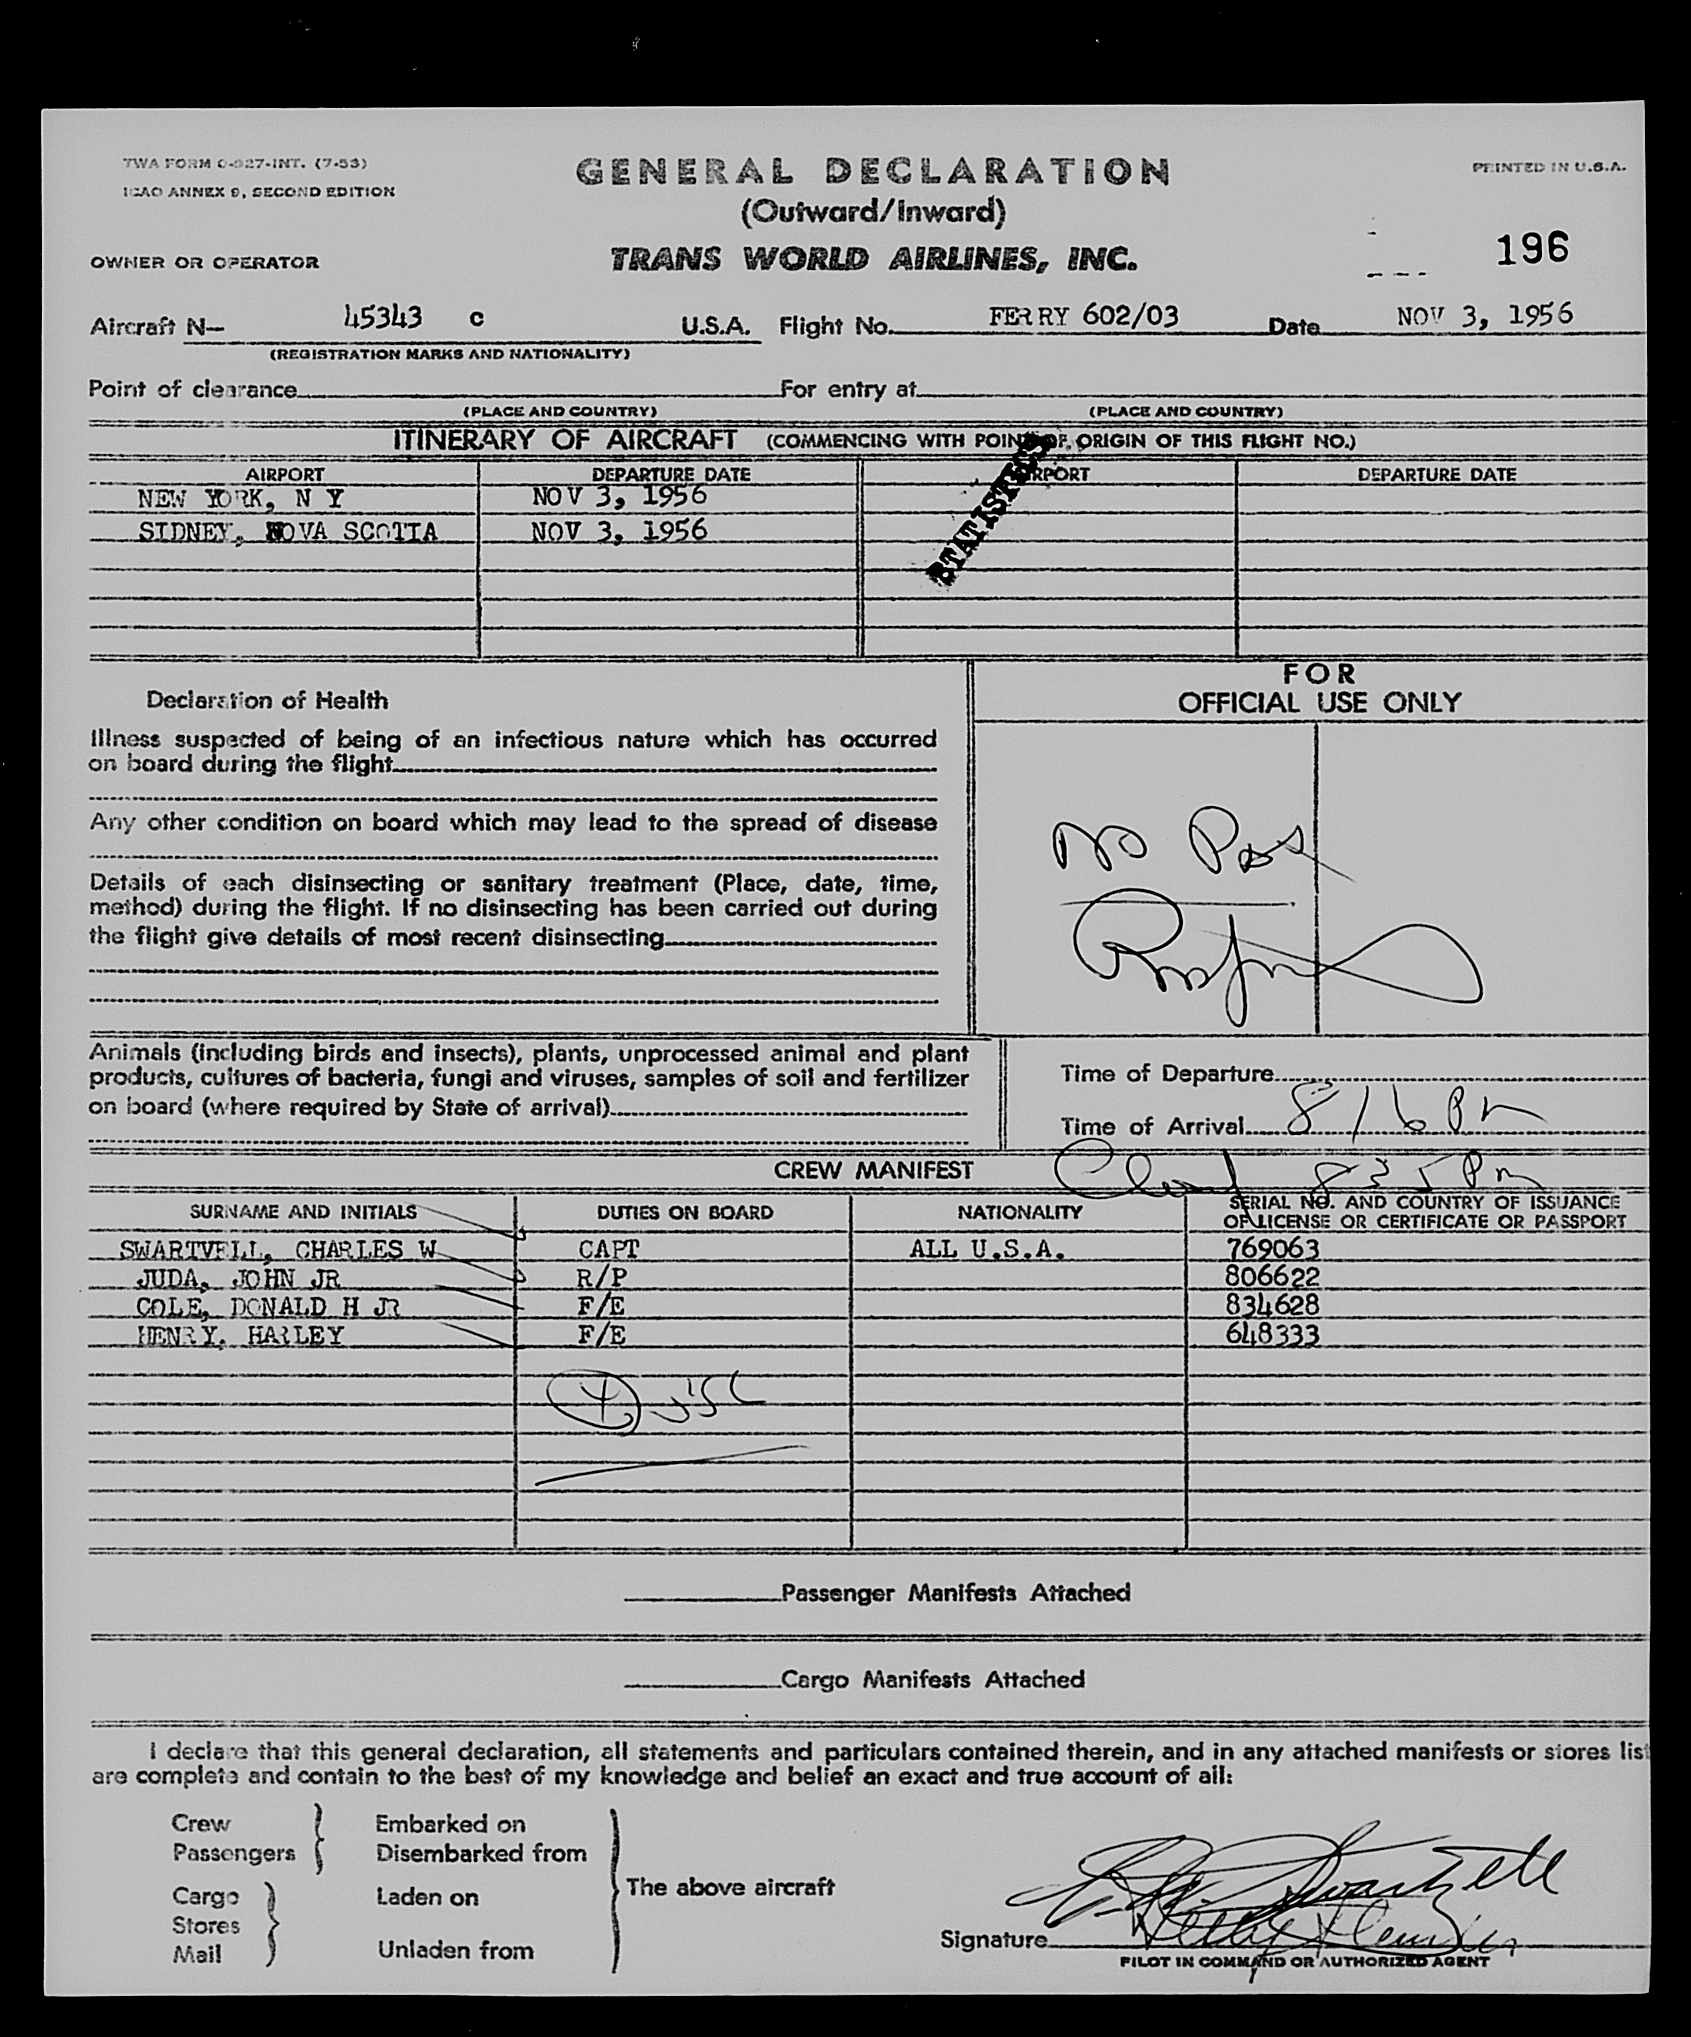 TWA FORM O-927-INT. (7-53)
ICAO ANNEX 9, SECOND EDITION
GENERAL DECLARATION
(Outward/Inward)
PRINTED IN U.S.A.
OWNER OR OPERATOR
TRANS WORLD AIRLINES, INC.
196
Aircraft N— 45343 c U.S.A. Flight No. FERRY 602/03 Date NOV 3, 1956
(REGISTRATION MARKS AND NATIONALITY)
Point of clearance For entry at
(PLACE AND COUNTRY) (PLACE AND COUNTRY)
ITINERARY OF AIRCRAFT (COMMENCING WITH POINT OF ORIGIN OF THIS FLIGHT NO.)
STATISTICS
AIRPORT DEPARTURE DATE AIRPORT DEPARTURE DATE
NEW YORK, N Y NOV 3, 1956
SIDNEY, NOVA SCOTIA NOV 3, 1956
FOR
OFFICIAL USE ONLY
Declaration of Health
Illness suspected of being of an infectious nature which has occurred
on board during the flight
Any other condition on board which may lead to the spread of disease
Details of each disinsecting or sanitary treatment (Place, date, time,
method) during the flight. If no disinsecting has been carried out during
the flight give details of most recent disinsecting
No Pass
Animals (including birds and insects), plants, unprocessed animal and plant
products, cultures of bacteria, fungi and viruses, samples of soil and fertilizer
on board (where required by State of arrival)
Time of Departure
Time of Arrival 816 Pm
CREW MANIFEST
Cleared 835 Pm
SURNAME AND INITIALS DUTIES ON BOARD NATIONALITY SERIAL NO. AND COUNTRY OF ISSUANCE
OF LICENSE OR CERTIFICATE OR PASSPORT
SWARTVELL, CHARLES W CAPT ALL U.S.A. 769063
JUDA, JOHN JR R/P 806622
COLE, DONALD H JR F/E 834628
HENRY, HARLEY F/E 648333
4 USC
Passenger Manifests Attached
Cargo Manifests Attached
I declare that this general declaration, all statements and particulars contained therein, and in any attached manifests or stores list
are complete and contain to the best of my knowledge and belief an exact and true account of all:
Crew Embarked on
Passengers Disembarked from
The above aircraft
Cargo Laden on
Stores
Mail Unladen from
Signature
PILOT IN COMMAND OR AUTHORIZED AGENT